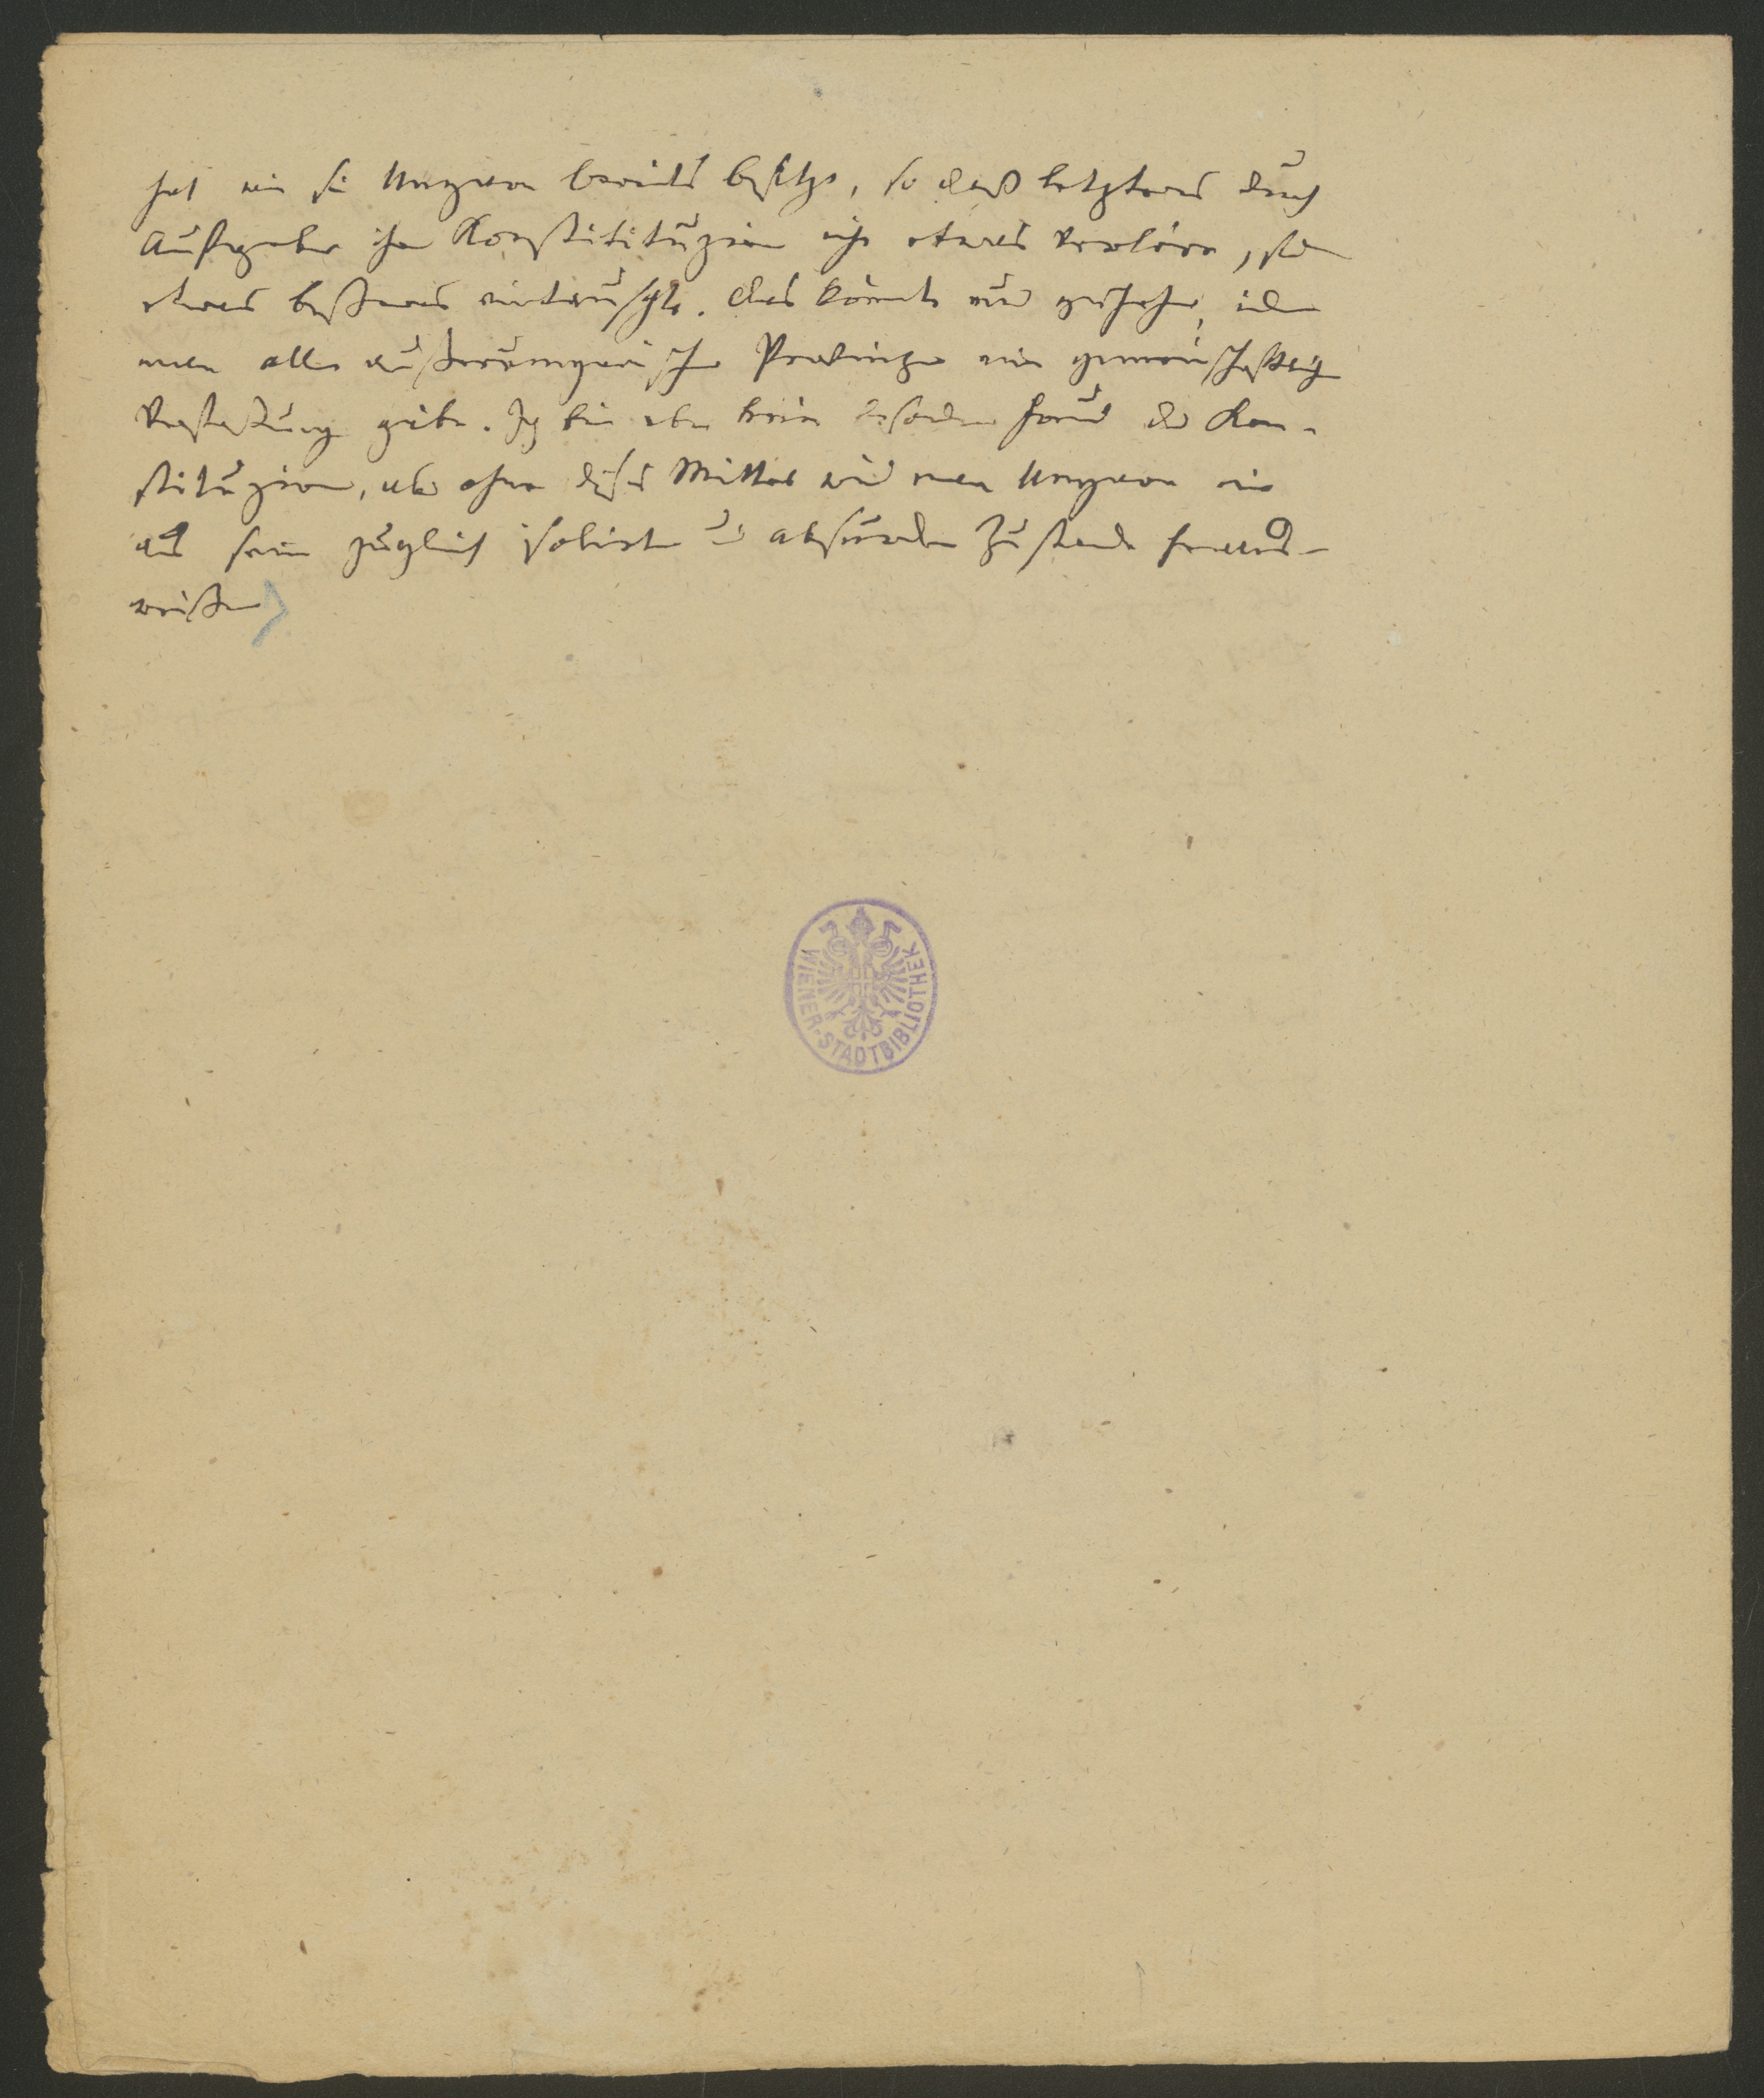 hat wie sie Ungarn bereits besitzt, so daß letzteres durch
Aufgeben ihrer Konstitituzion nicht etwas verlöre, sondern
etwas besseres eintauschte. Das könnte nur geschehen, indem
man allen außerungarischen Provinzen eine gemeinschaftliche
Verfassung gäbe. Ich bin eben kein besonderer Freund der Kon-
stituzionen, aber ohne dieses Mittel wird man Ungarn nie
aus seinem zugleich isolirten und absurden Zustande heraus-
reißen
WIENER-STADTBIBLIOTHEK